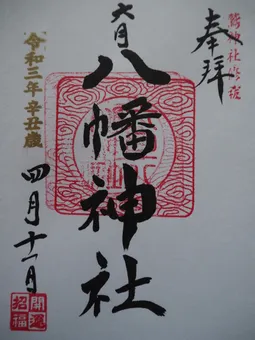 鷲神社
奉拝
六月
八幡神社
令和三年辛丑歳
四月十一日
開運
招福